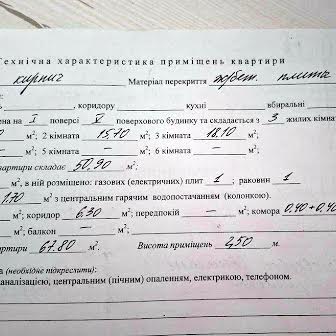 Технічна характеристика приміщень квартири
кирпич Матеріал перекриття плита
, коридору , кухні вбиральні
ена на I поверсі V поверхового будинку та складається з 3 жилих кімнат
м²; 2 кімната 15,70 м²; 3 кімната 18,10 м²;
м²; 5 кімната — м²; 6 кімната — м²;
вартири складає 50,90 м².
м², в ній розміщено: газових (електричних) плит 1 ; раковин 1
1,70 м² з центральним гарячим водопостачанням (колонкою).
м²; коридор 6.30 м²; передпокій — м²; комора 0,40+0,40
м²; балкон — м²;
артири 67.80 м². Висота приміщень 2,50 м.
а (необхідне підкреслити):
каналізацією, центральним (пічним) опаленням, електрикою, телефоном.